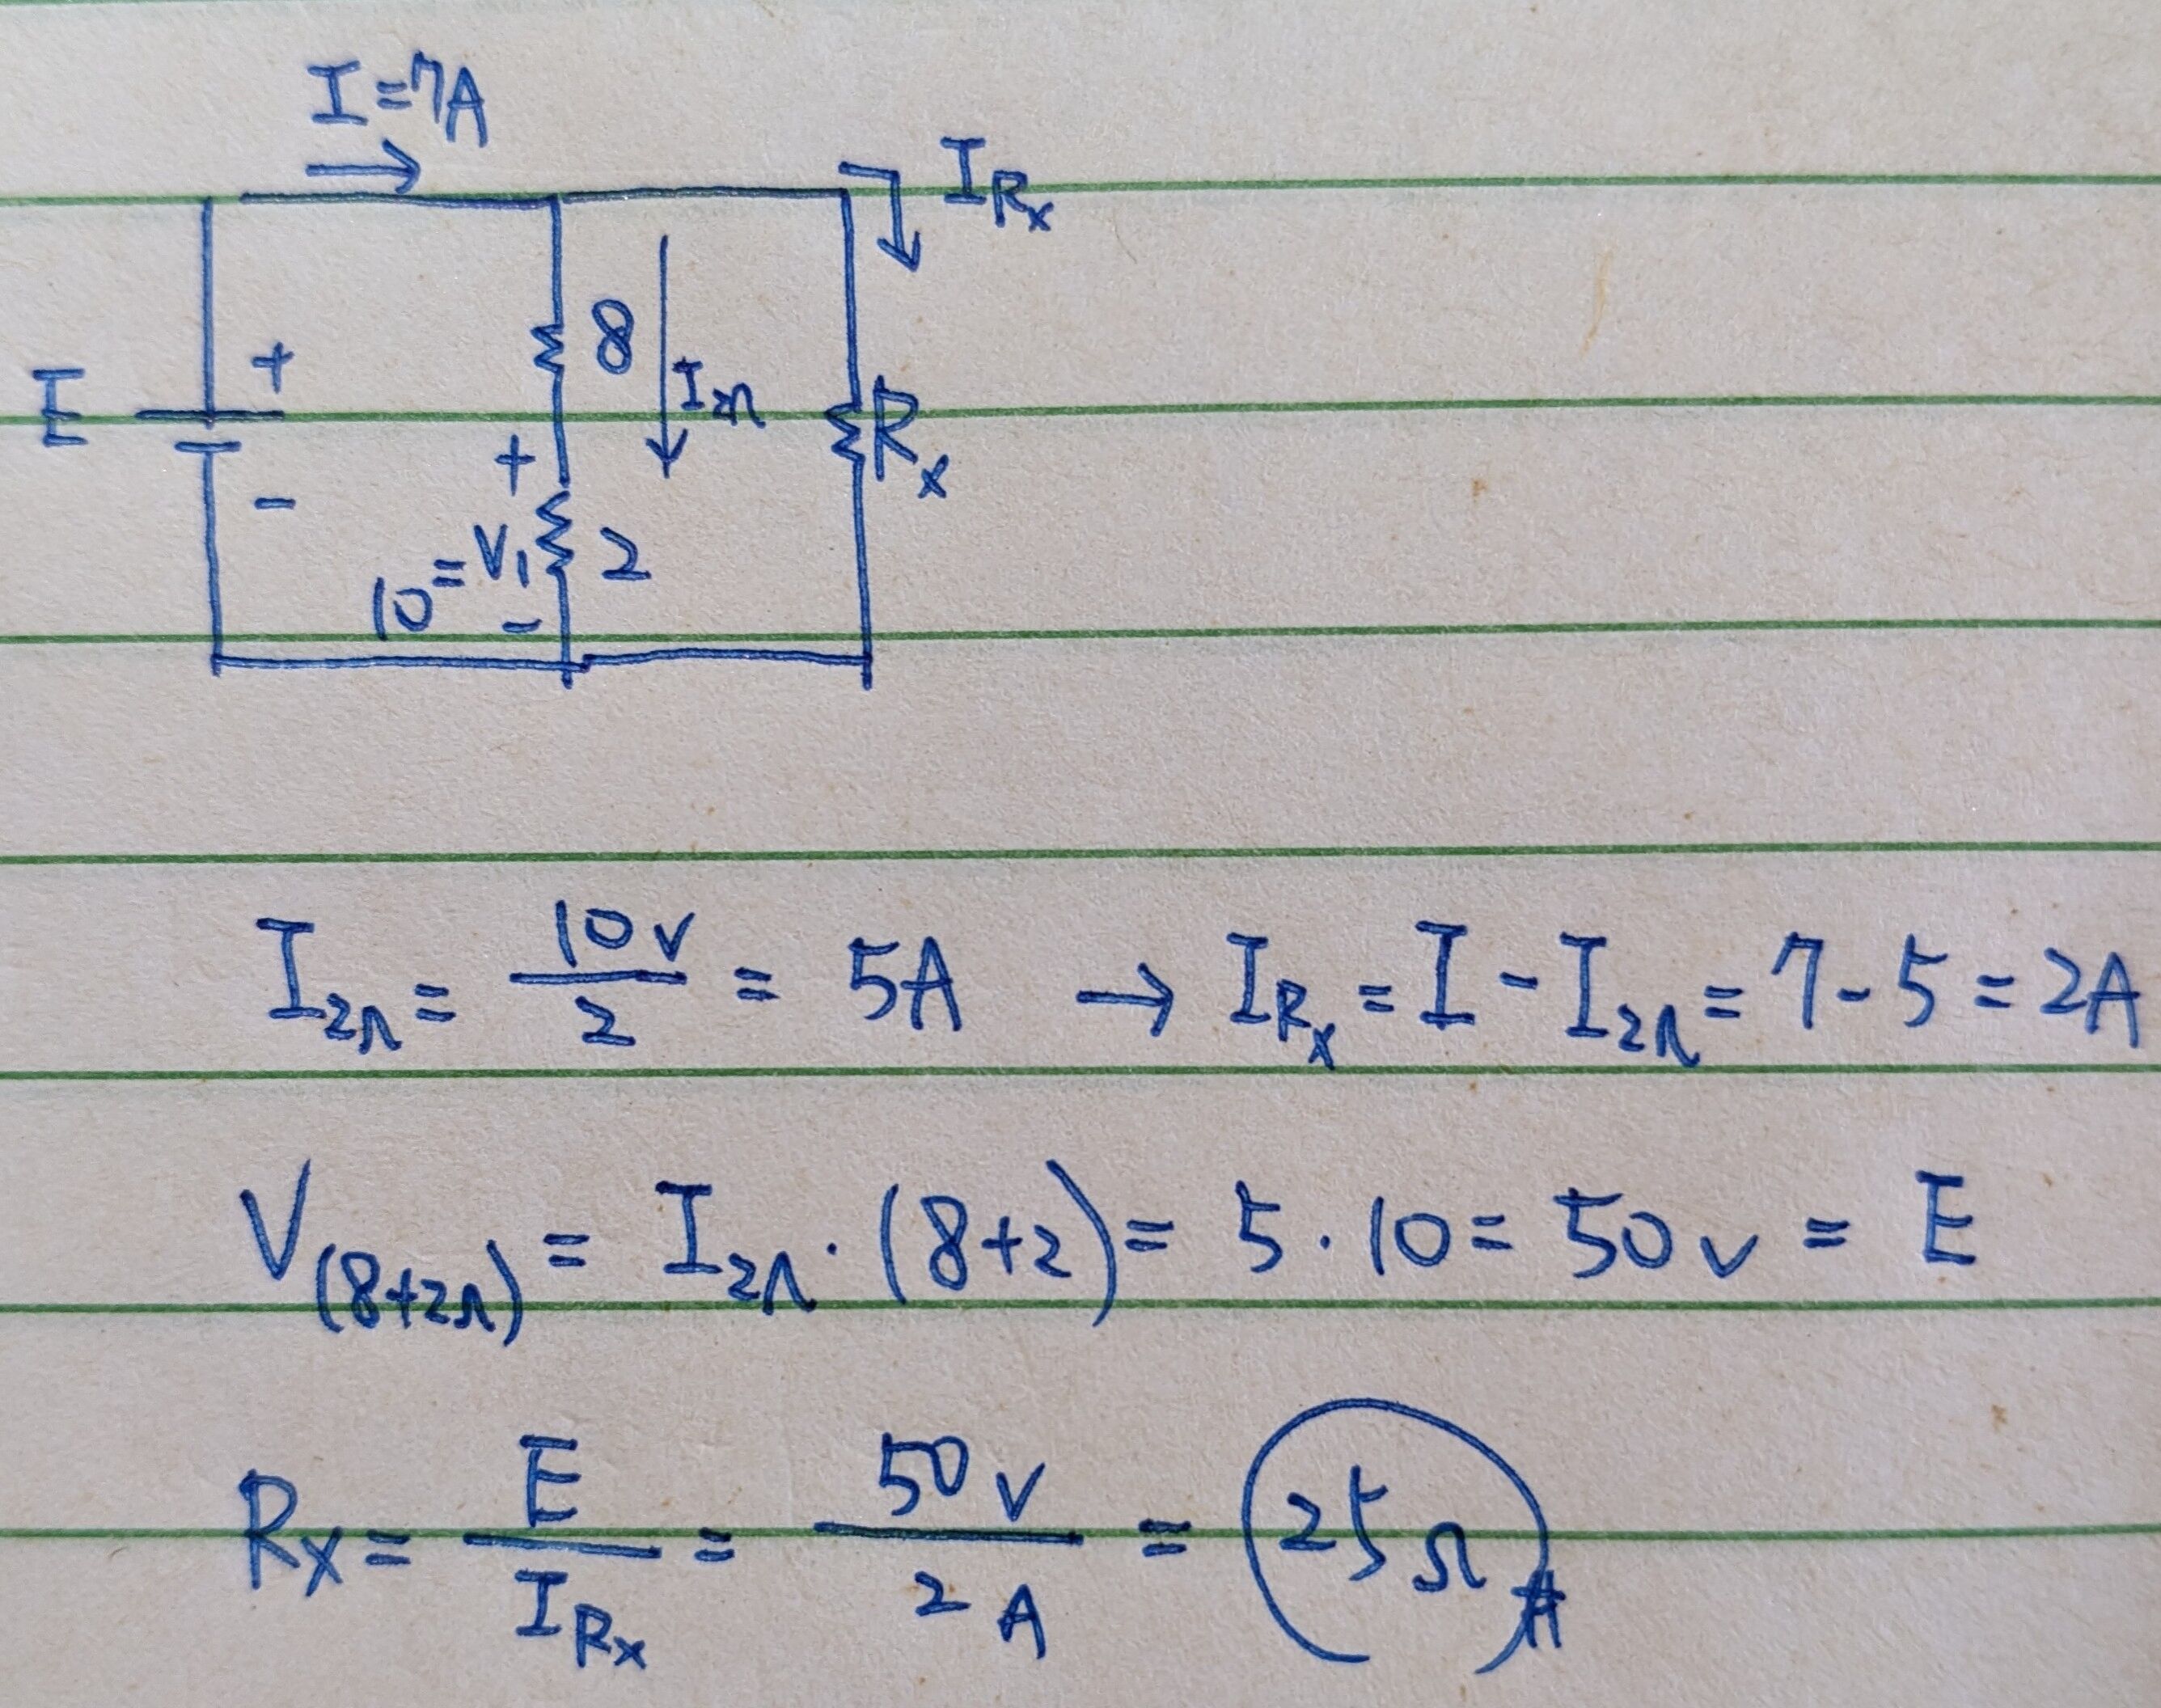 I=7A
I_Rx
8
I_2Ω
E
+
-
+
R_x
10=V_1
2
-
I_2Ω = 10v/2 = 5A → I_Rx = I - I_2Ω = 7-5 = 2A
V_(8+2Ω) = I_2Ω · (8+2) = 5 · 10 = 50v = E
Rx = E/I_Rx = 50v/2A = 25Ω #